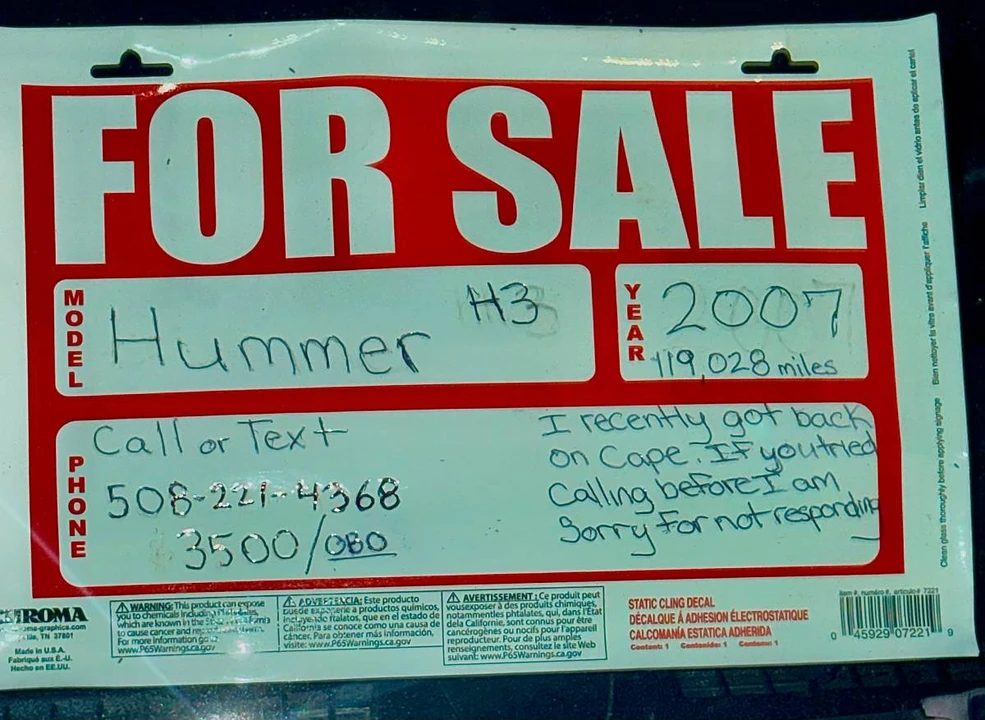 FOR SALE
MODEL
Hummer H3
YEAR
2007
119,028 miles
PHONE
Call or Text
508-221-4368
3500/OBO
I recently got back
on Cape. If you tried
Calling before I am
Sorry for not responding
ROMA
TN 37801
Made in U.S.A.
Fabriqué aux É.-U.
Hecho en EE.UU.
WARNING: This product can expose
you to chemicals including
which are known in the
to cause cancer and
For more information go to
www.P65Warnings.ca.gov
Este producto
puede exponerle a productos químicos,
incluyendo ftalatos, que en el estado de
California se conoce como una causa de
cáncer. Para obtener más información,
visite: www.P65Warnings.ca.gov
AVERTISSEMENT: Ce produit peut
vousexposer à des produits chimiques,
notammentles phtalates, qui, dans l'État
dela Californie, sont connus pour être
cancérogènes ou nocifs pour l'appareil
reproducteur. Pour de plus amples
renseignements, consultez le site Web
suivant: www.P65Warnings.ca.gov
STATIC CLING DECAL
DÉCALQUE À ADHESION ÉLECTROSTATIQUE
CALCOMANÍA ESTATICA ADHERIDA
Content: 1 Contenido: 1 Contenu: 1
item #, numéro #, artículo# 7221
0 45929 07221 9
Clean glass thoroughly before applying signage Bien nettoyer la vitre avant d'appliquer l'affiche Limpiar bien el vidrio antes de aplicar el cartel